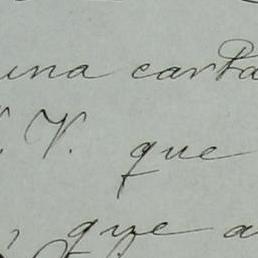 una carta
V. que
que a